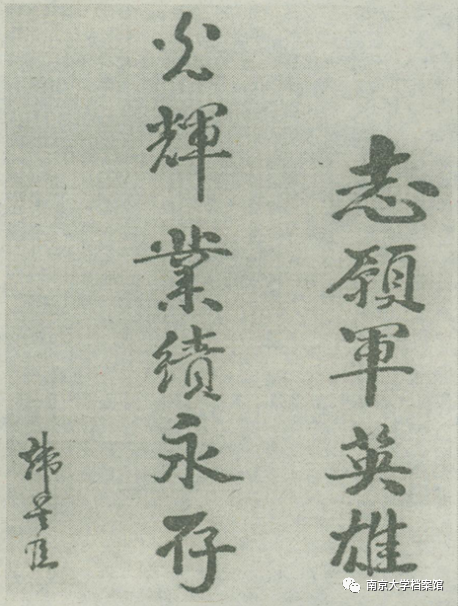 志願軍英雄
光輝業績永存
韩星臣
南京大学档案馆